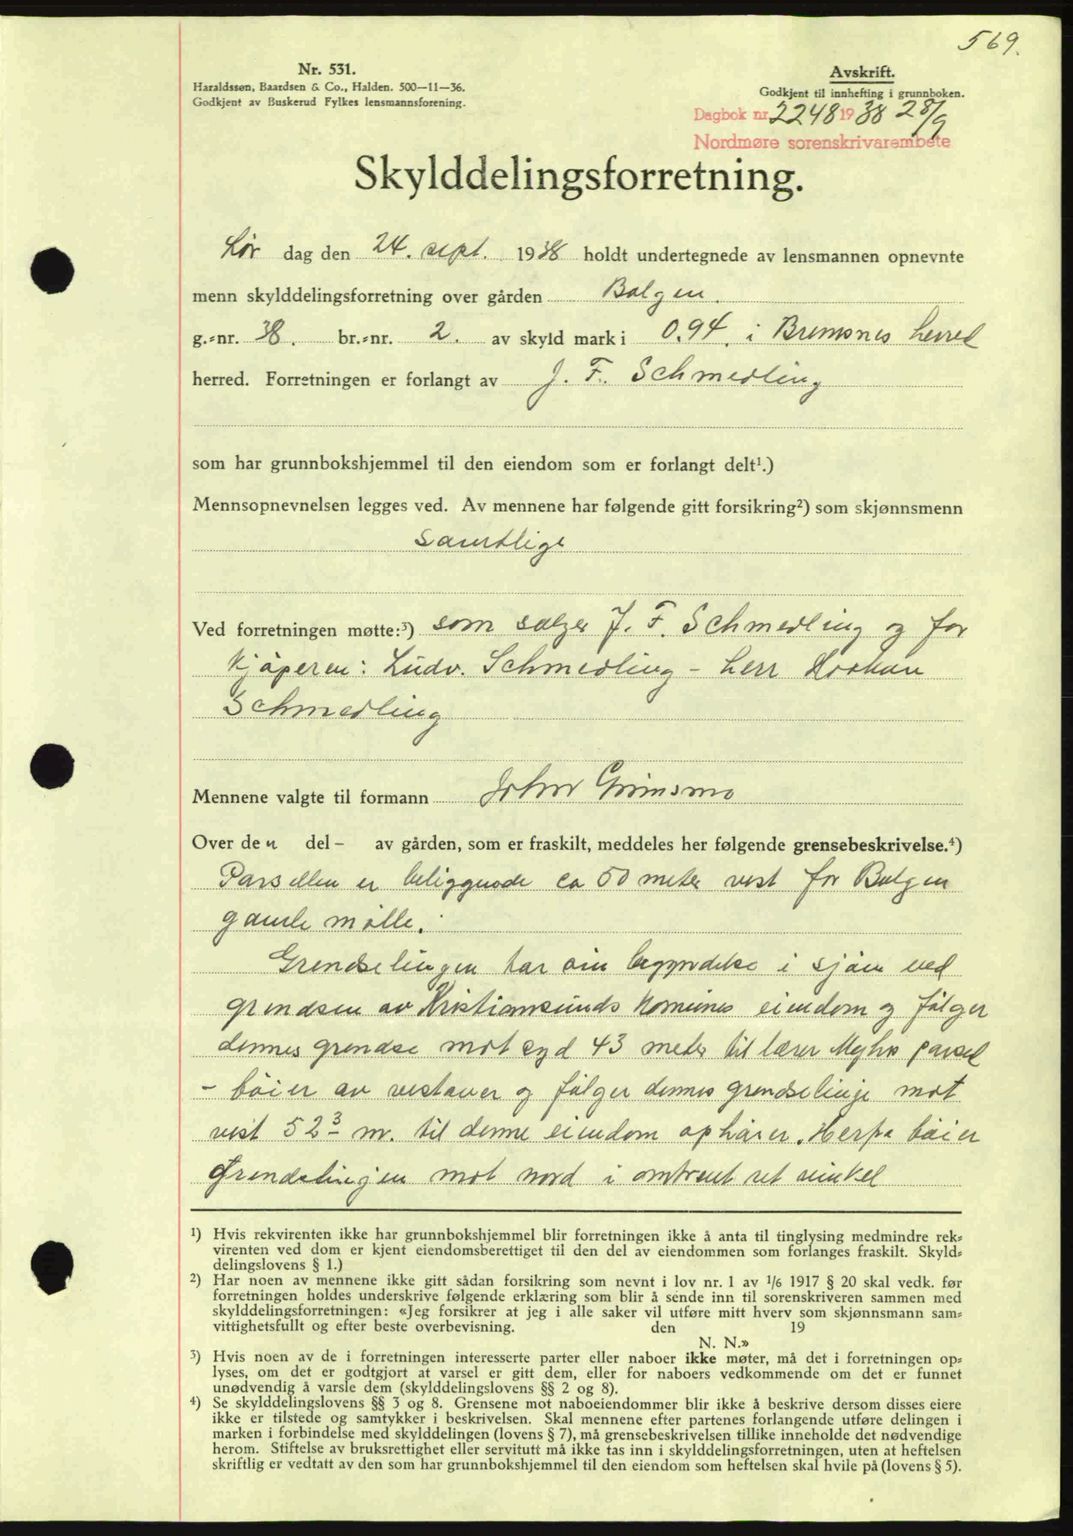 569.
Nr. 531.
Haraldssøn, Baardsen & Co., Halden. 500—11—36.
Godkjent av Buskerud Fylkes lensmannsforening.
Avskrift.
Godkjent til innhefting i grunnboken.
Dagbok nr. 2248 1938 28/9
Nordmøre sorenskrivarembete
Skylddelingsforretning.
Lør dag den 24. sept. 1938 holdt undertegnede av lensmannen opnevnte
menn skylddelingsforretning over gården Bolgen.
g.=nr. 38. br.=nr. 2. av skyld mark i 0.94. i Bremsnes herred
herred. Forretningen er forlangt av J. F. Schmedling
som har grunnbokshjemmel til den eiendom som er forlangt delt¹.)
Mennsopnevnelsen legges ved. Av mennene har følgende gitt forsikring²) som skjønnsmenn
samtlige
Ved forretningen møtte:³) som selger J. F. Schmedling og for
kjøperen: Ludv. Schmedling - herr Haakon
Schmedling
Mennene valgte til formann John Grimsmo
Over den del - av gården, som er fraskilt, meddeles her følgende grensebeskrivelse.⁴)
Parsellen er beliggende ca 50 meter vest for Bolgen
gamle mølle.
Grendselinjen tar sin begyndelse i sjøen ved
grendsen av Kristiansunds komunes eiendom og følger
dennes grendse mot syd 43 meter til lærer Myhrs parsel
- bøier av vestover og følger dennes grendselinje mot
vest 52³ m. til denne eiendom ophører. Herfra bøier
Grendselinjen mot nord i omtrent ret vinkel
¹) Hvis rekvirenten ikke har grunnbokshjemmel blir forretningen ikke å anta til tinglysing medmindre rek=
virenten ved dom er kjent eiendomsberettiget til den del av eiendommen som forlanges fraskilt. Skyld=
delingslovens § 1.)
²) Har noen av mennene ikke gitt sådan forsikring som nevnt i lov nr. 1 av ¹/₆ 1917 § 20 skal vedk. før
forretningen holdes underskrive følgende erklæring som blir å sende inn til sorenskriveren sammen med
skylddelingsforretningen: «Jeg forsikrer at jeg i alle saker vil utføre mitt hverv som skjønnsmann sam=
vittighetsfullt og efter beste overbevisning. den 19
N. N.»
³) Hvis noen av de i forretningen interesserte parter eller naboer ikke møter, må det i forretningen op=
lyses, om det er godtgjort at varsel er gitt dem, eller for naboers vedkommende om det er funnet
unødvendig å varsle dem (skylddelingslovens §§ 2 og 8).
⁴) Se skylddelingslovens §§ 3 og 8. Grensene mot naboeiendommer blir ikke å beskrive dersom disses eiere
ikke er tilstede og samtykker i beskrivelsen. Skal mennene efter partenes forlangende utføre delingen i
marken i forbindelse med skylddelingen (lovens § 7), må grensebeskrivelsen tillike inneholde det nødvendige
herom. Stiftelse av bruksrettighet eller servitutt må ikke tas inn i skylddelingsforretningen, uten at heftelsen
skriftlig er vedtatt av den som har grunnbokshjemmel til den eiendom som heftelsen skal hvile på (lovens § 5).